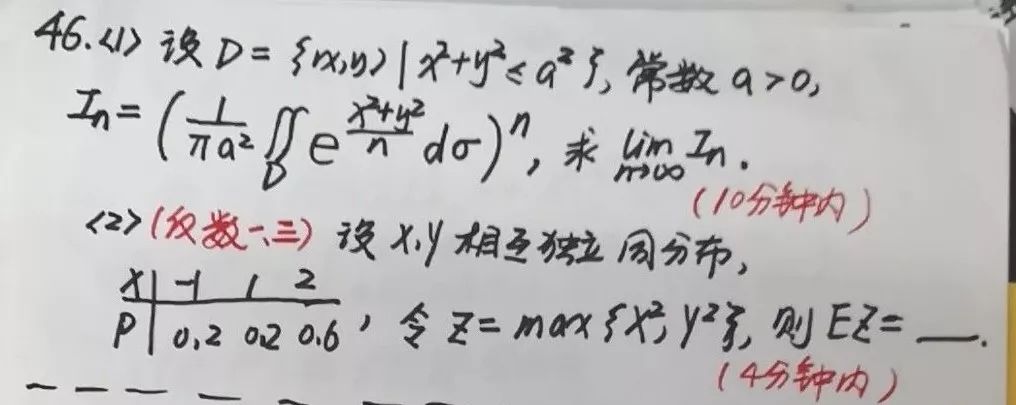 46.<1> 设 D = {(x,y) | x²+y² ≤ a²}, 常数 a>0,
Iₙ = (1/πa² ∬_D e^((x²+y²)/n) dσ)ⁿ, 求 lim_{n→∞} Iₙ.
(10分钟内)
<2> (仅数一、三) 设 X,Y 相互独立同分布,
X | -1 1 2
P | 0.2 0.2 0.6 , 令 Z = max{X²,Y²}, 则 EZ = __.
(4分钟内)